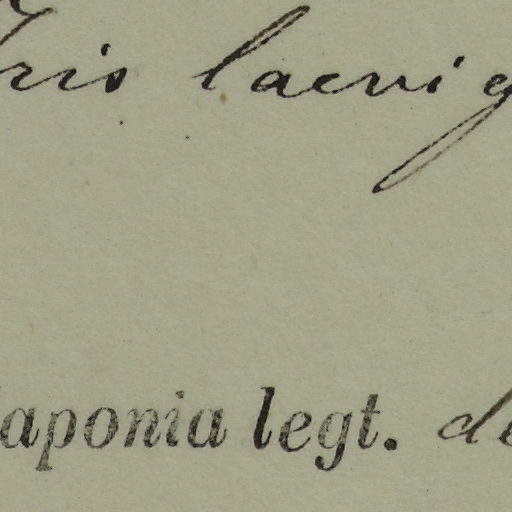 Iris laevig
aponia legt. de